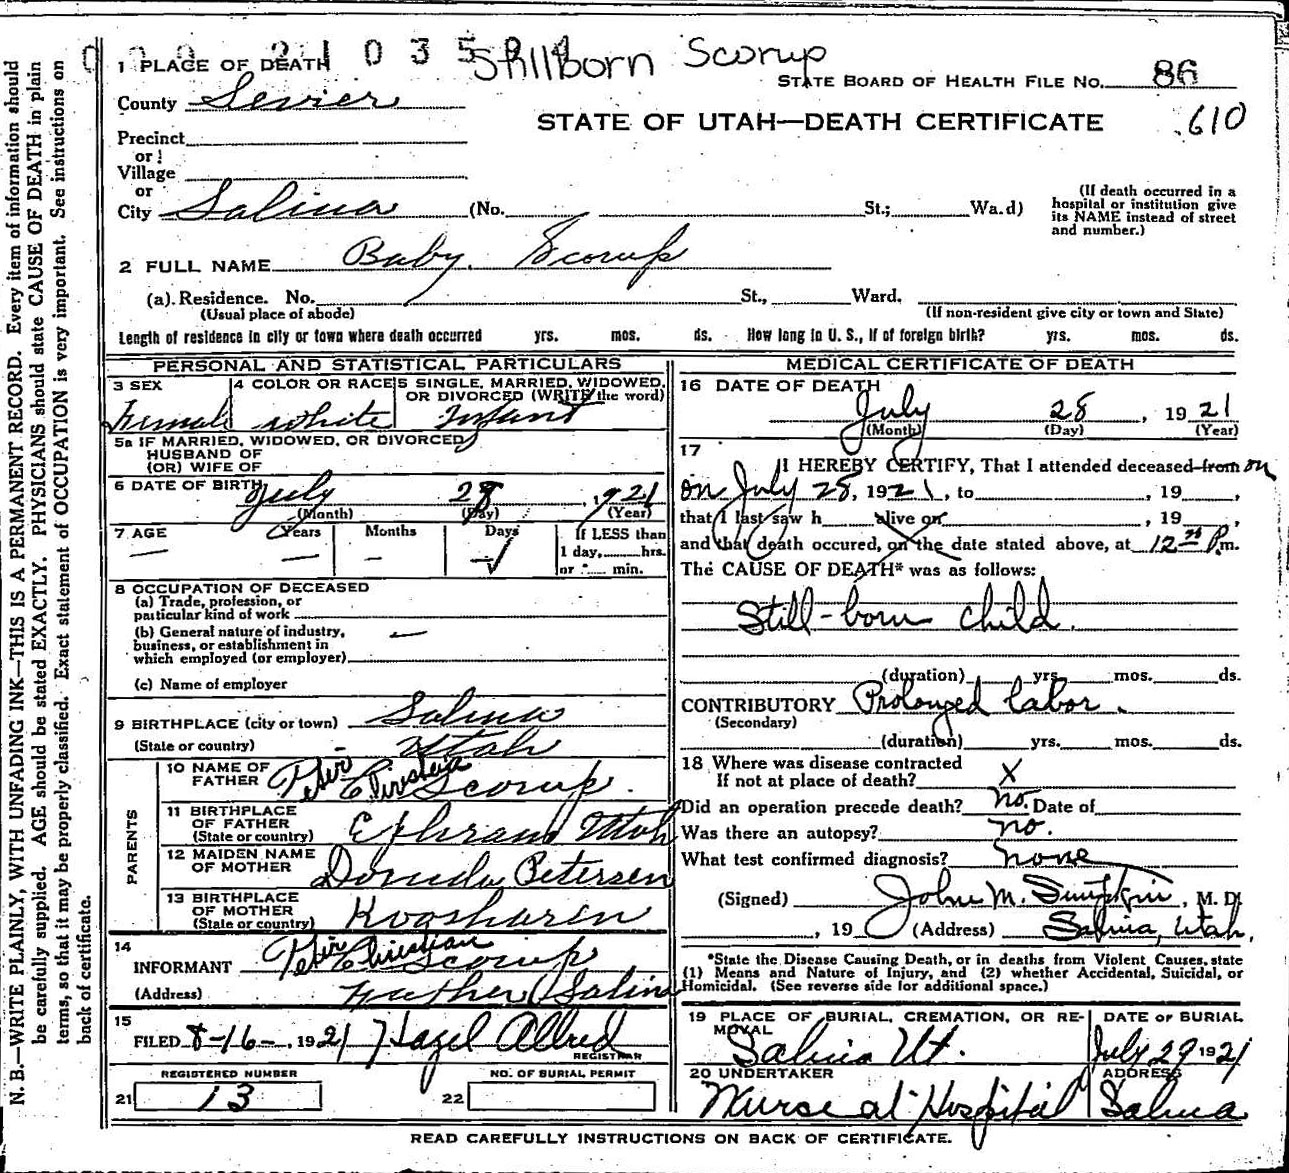 1 PLACE OF DEATH 21035 Stillborn Scorup
STATE BOARD OF HEALTH FILE NO. 86
County Sevier
STATE OF UTAH—DEATH CERTIFICATE .610
Precinct
or
Village
or
City Salina (No. St.; Wa.d)
(If death occurred in a
hospital or institution give
its NAME instead of street
and number.)
2 FULL NAME Baby Scorup
(a). Residence. No. St., Ward.
(Usual place of abode) (If non-resident give city or town and State)
Length of residence in city or town where death occurred yrs. mos. ds. How long in U. S., if of foreign birth? yrs. mos. ds.
PERSONAL AND STATISTICAL PARTICULARS
3 SEX 4 COLOR OR RACE 5 SINGLE, MARRIED, WIDOWED,
OR DIVORCED (WRITE the word)
Female white Infant
5a IF MARRIED, WIDOWED, OR DIVORCED
HUSBAND OF
(OR) WIFE OF
6 DATE OF BIRTH July 28, 1921
(Month) (Day) (Year)
7 AGE Years Months Days If LESS than
1 day, hrs.
or min.
8 OCCUPATION OF DECEASED
(a) Trade, profession, or
particular kind of work
(b) General nature of industry,
business, or establishment in
which employed (or employer)
(c) Name of employer
9 BIRTHPLACE (city or town) Salina
(State or country) Utah
PARENTS
10 NAME OF
FATHER Peter Christian Scorup
11 BIRTHPLACE
OF FATHER
(State or country) Ephraim Utah
12 MAIDEN NAME
OF MOTHER Petersen
13 BIRTHPLACE
OF MOTHER
(State or country) Koosharen
14
INFORMANT Peter Christian Scorup
(Address) Father (Salina
15
FILED 8-16-, 1921 Hazel Allred
REGISTRAR
REGISTERED NUMBER NO. OF BURIAL PERMIT
21 13 22
MEDICAL CERTIFICATE OF DEATH
16 DATE OF DEATH
July 28, 1921
(Month) (Day) (Year)
17
I HEREBY CERTIFY, That I attended deceased from on
on July 28, 1921, to , 19 ,
that I last saw h alive on , 19 ,
and that death occured, on the date stated above, at 12 P.m.
The CAUSE OF DEATH* was as follows:
Still-born child.
(duration) yrs. mos. ds.
CONTRIBUTORY Prolonged labor.
(Secondary)
(duration) yrs. mos. ds.
18 Where was disease contracted
If not at place of death? X
Did an operation precede death? no. Date of
Was there an autopsy? no.
What test confirmed diagnosis? none
(Signed) John M. , M. D.
, 19 (Address) Salina, Utah,
*State the Disease Causing Death, or in deaths from Violent Causes, state
(1) Means and Nature of Injury, and (2) whether Accidental, Suicidal, or
Homicidal. (See reverse side for additional space.)
19 PLACE OF BURIAL, CREMATION, OR RE-
MOVAL DATE OF BURIAL
Salina Ut. July 29 1921
20 UNDERTAKER ADDRESS
Nurse at Hospital Salina
READ CAREFULLY INSTRUCTIONS ON BACK OF CERTIFICATE.
N. B.—WRITE PLAINLY, WITH UNFADING INK—THIS IS A PERMANENT RECORD. Every item of information should
be carefully supplied. AGE should be stated EXACTLY. PHYSICIANS should state CAUSE OF DEATH in plain
terms, so that it may be properly classified. Exact statement of OCCUPATION is very important. See instructions on
back of certificate.